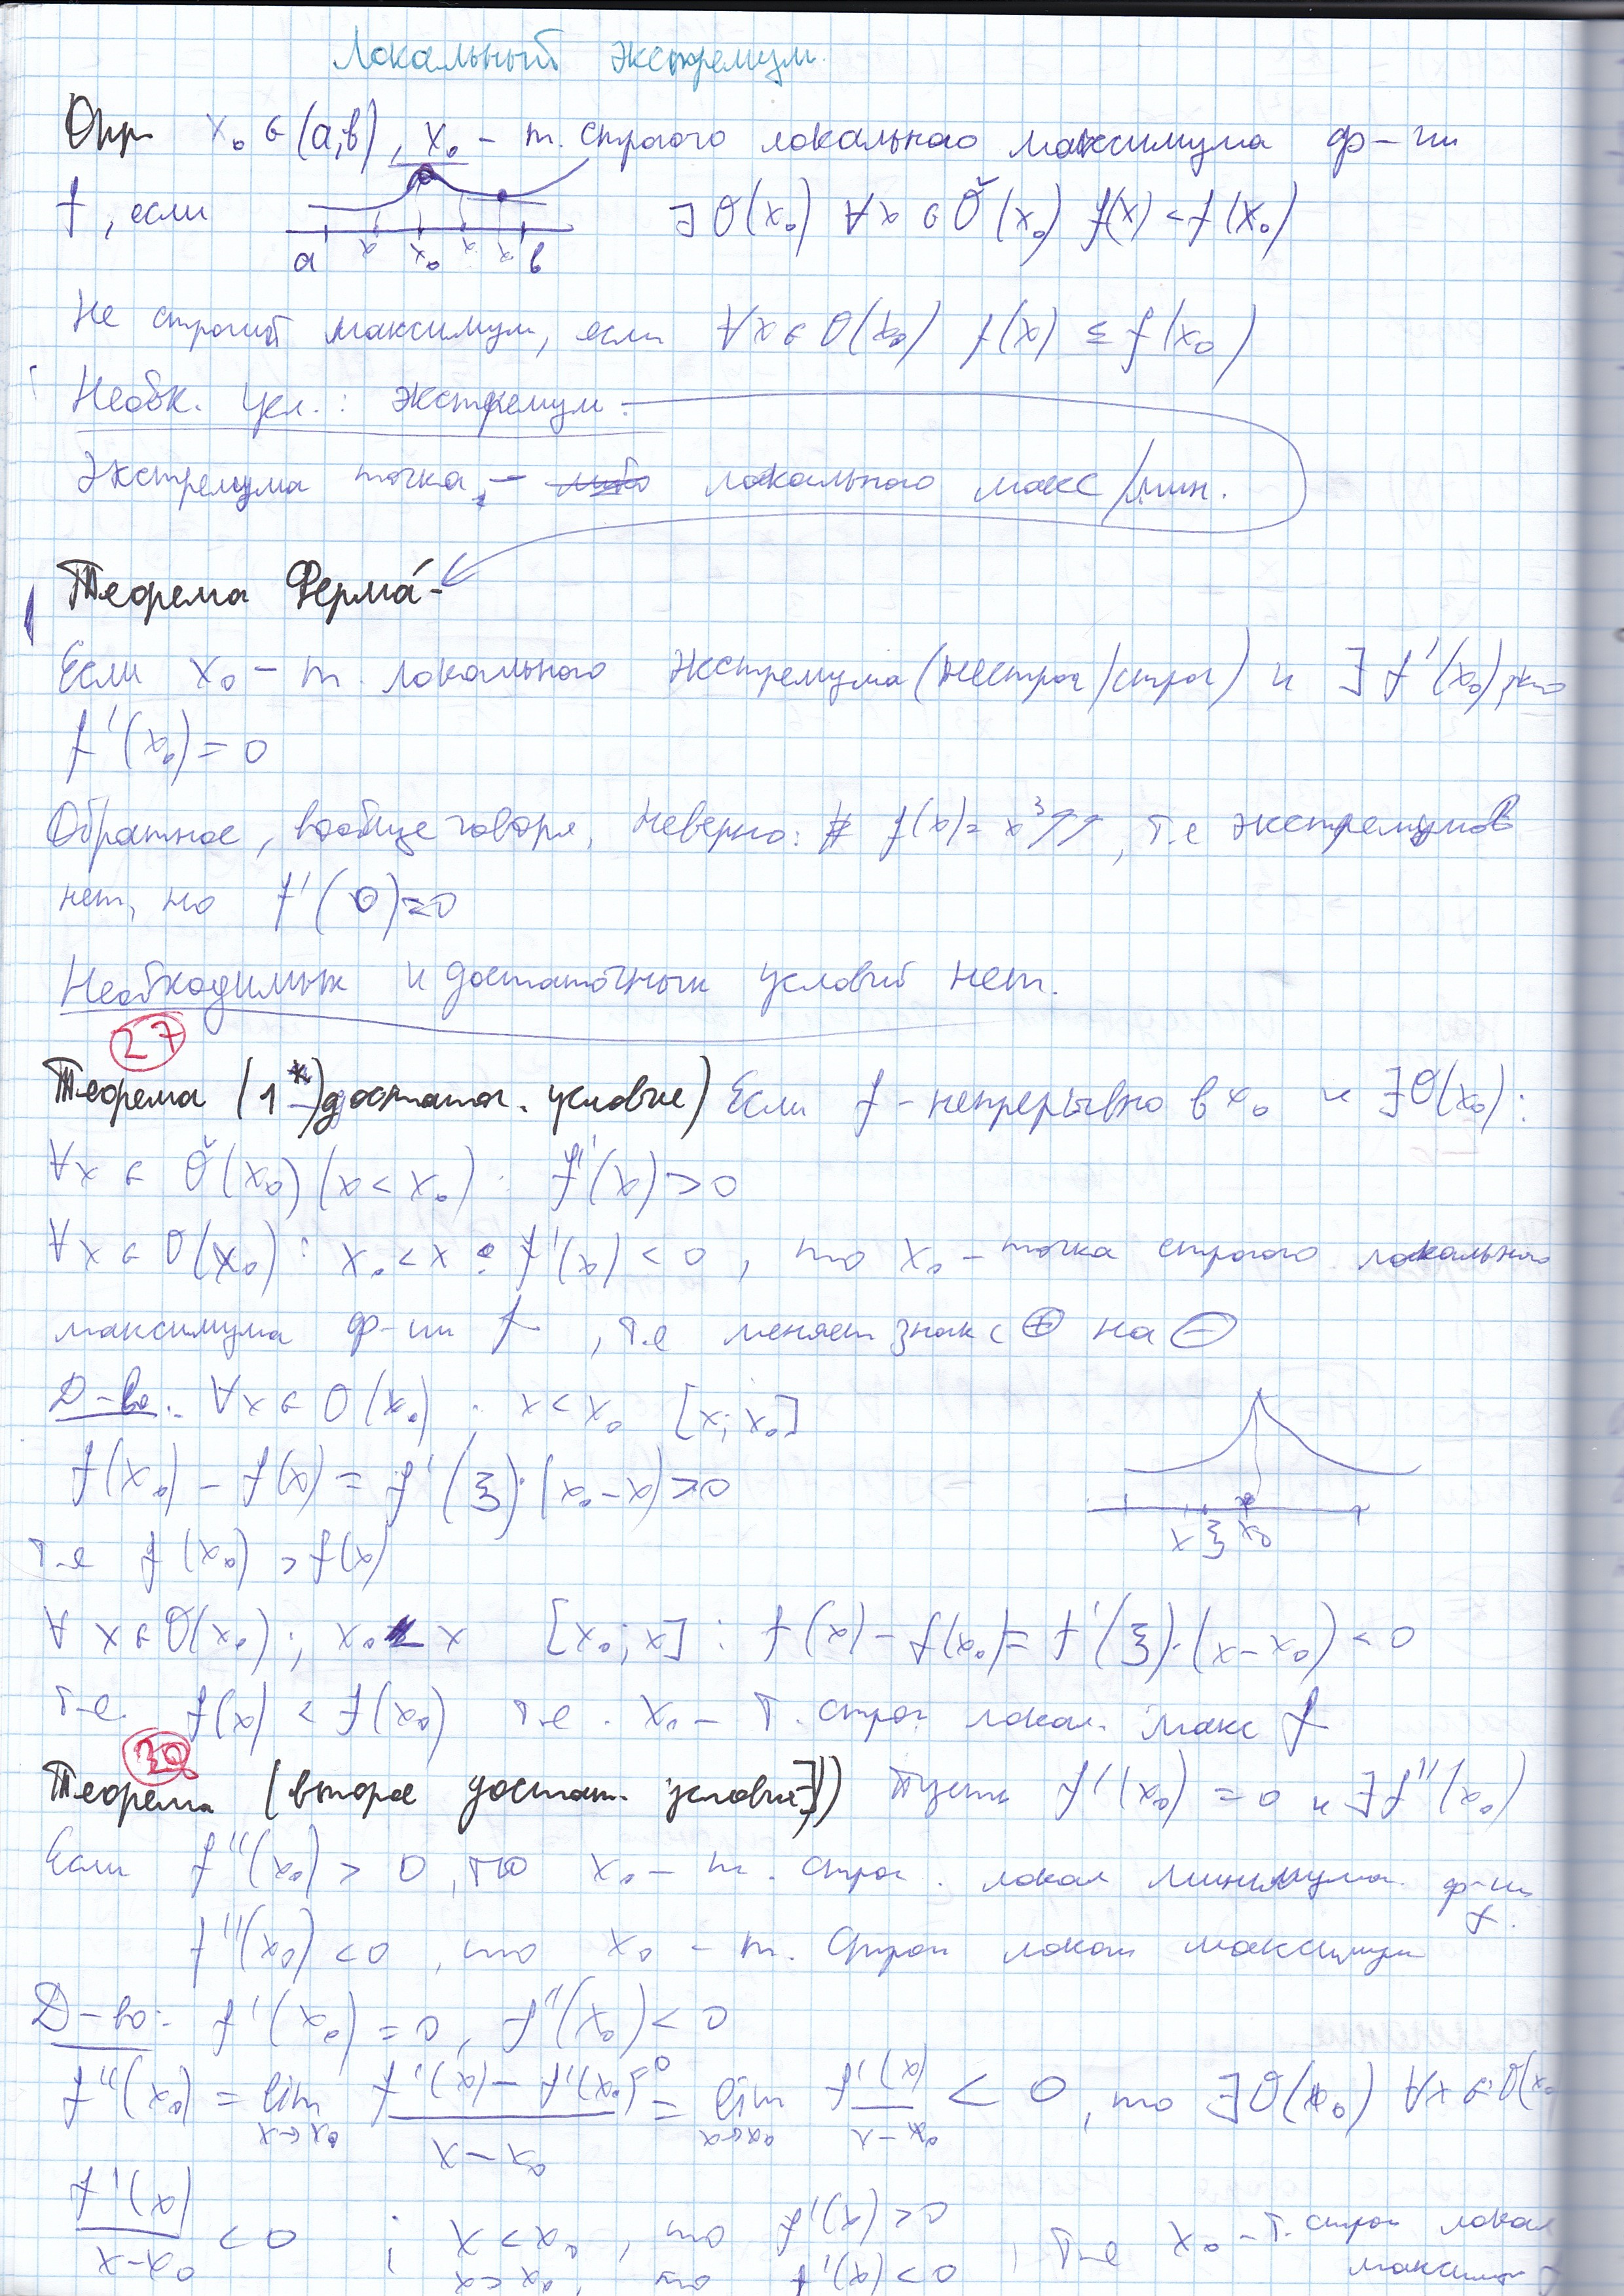 Локальный экстремум
Опр x₀ ∈ (a;b), x₀ – т. строго локального максимума ф-ии
f, если ∃ O(x₀) ∀x ∈ Ǒ(x₀) f(x) < f(x₀)
a x x₀ x x b
Не строгий максимум, если ∀x ∈ O(x₀) f(x) ≤ f(x₀)
Необх. усл.: экстремум
Экстремума точка, – локального макс/мин.
Теорема Ферма́-
Если x₀ – т. локального экстремума (нестрог/строг) и ∃ f'(x₀), то
f'(x₀) = 0
Обратное, вообще говоря, неверно: # f(x) = x³↑↑, т.е экстремумов
нет, но f'(0)=0
Необходимых и достаточных условий нет.
27
Теорема (1*) достаточ. условие) Если f – непрерывно в x₀ и ∃O(x₀):
∀x ∈ Ǒ(x₀) (x < x₀) : f'(x) > 0
∀x ∈ O(x₀) : x₀ < x : f'(x) < 0, то x₀ – точка строгого локального
максимума ф-ии f, т.е меняет знак с ⊕ на ⊖
Д-во: ∀x ∈ O(x₀) : x < x₀ [x; x₀]
f(x₀) – f(x) = f'(ξ)·(x₀–x) > 0
x ξ x₀
т.е f(x₀) > f(x)
∀ x ∈ O(x₀); x₀ < x [x₀; x] : f(x) – f(x₀) = f'(ξ)·(x–x₀) < 0
т.е. f(x) < f(x₀) т.е. x₀ – т. строг локал. макс f
Теорема (второе достат. условие)) Пусть f'(x₀) = 0 и ∃f''(x₀)
Если f''(x₀) > 0, то x₀ – т. строг. локал минимума ф-ии
f.
f''(x₀) < 0, то x₀ – т. строг локал максимум
Д-во: f'(x₀) = 0, f''(x₀) < 0
f''(x₀) = lim x→x₀ (f'(x) – f'(x₀)⁰)/(x–x₀) = lim x→x₀ f'(x)/(x–x₀) < 0, то ∃O(x₀) ∀x ∈ O(x₀
f'(x)/(x–x₀) < 0 ; x > x₀, то f'(x) < 0, т.е x₀ – т. строг локал
x < x₀, то f'(x) > 0 максимум